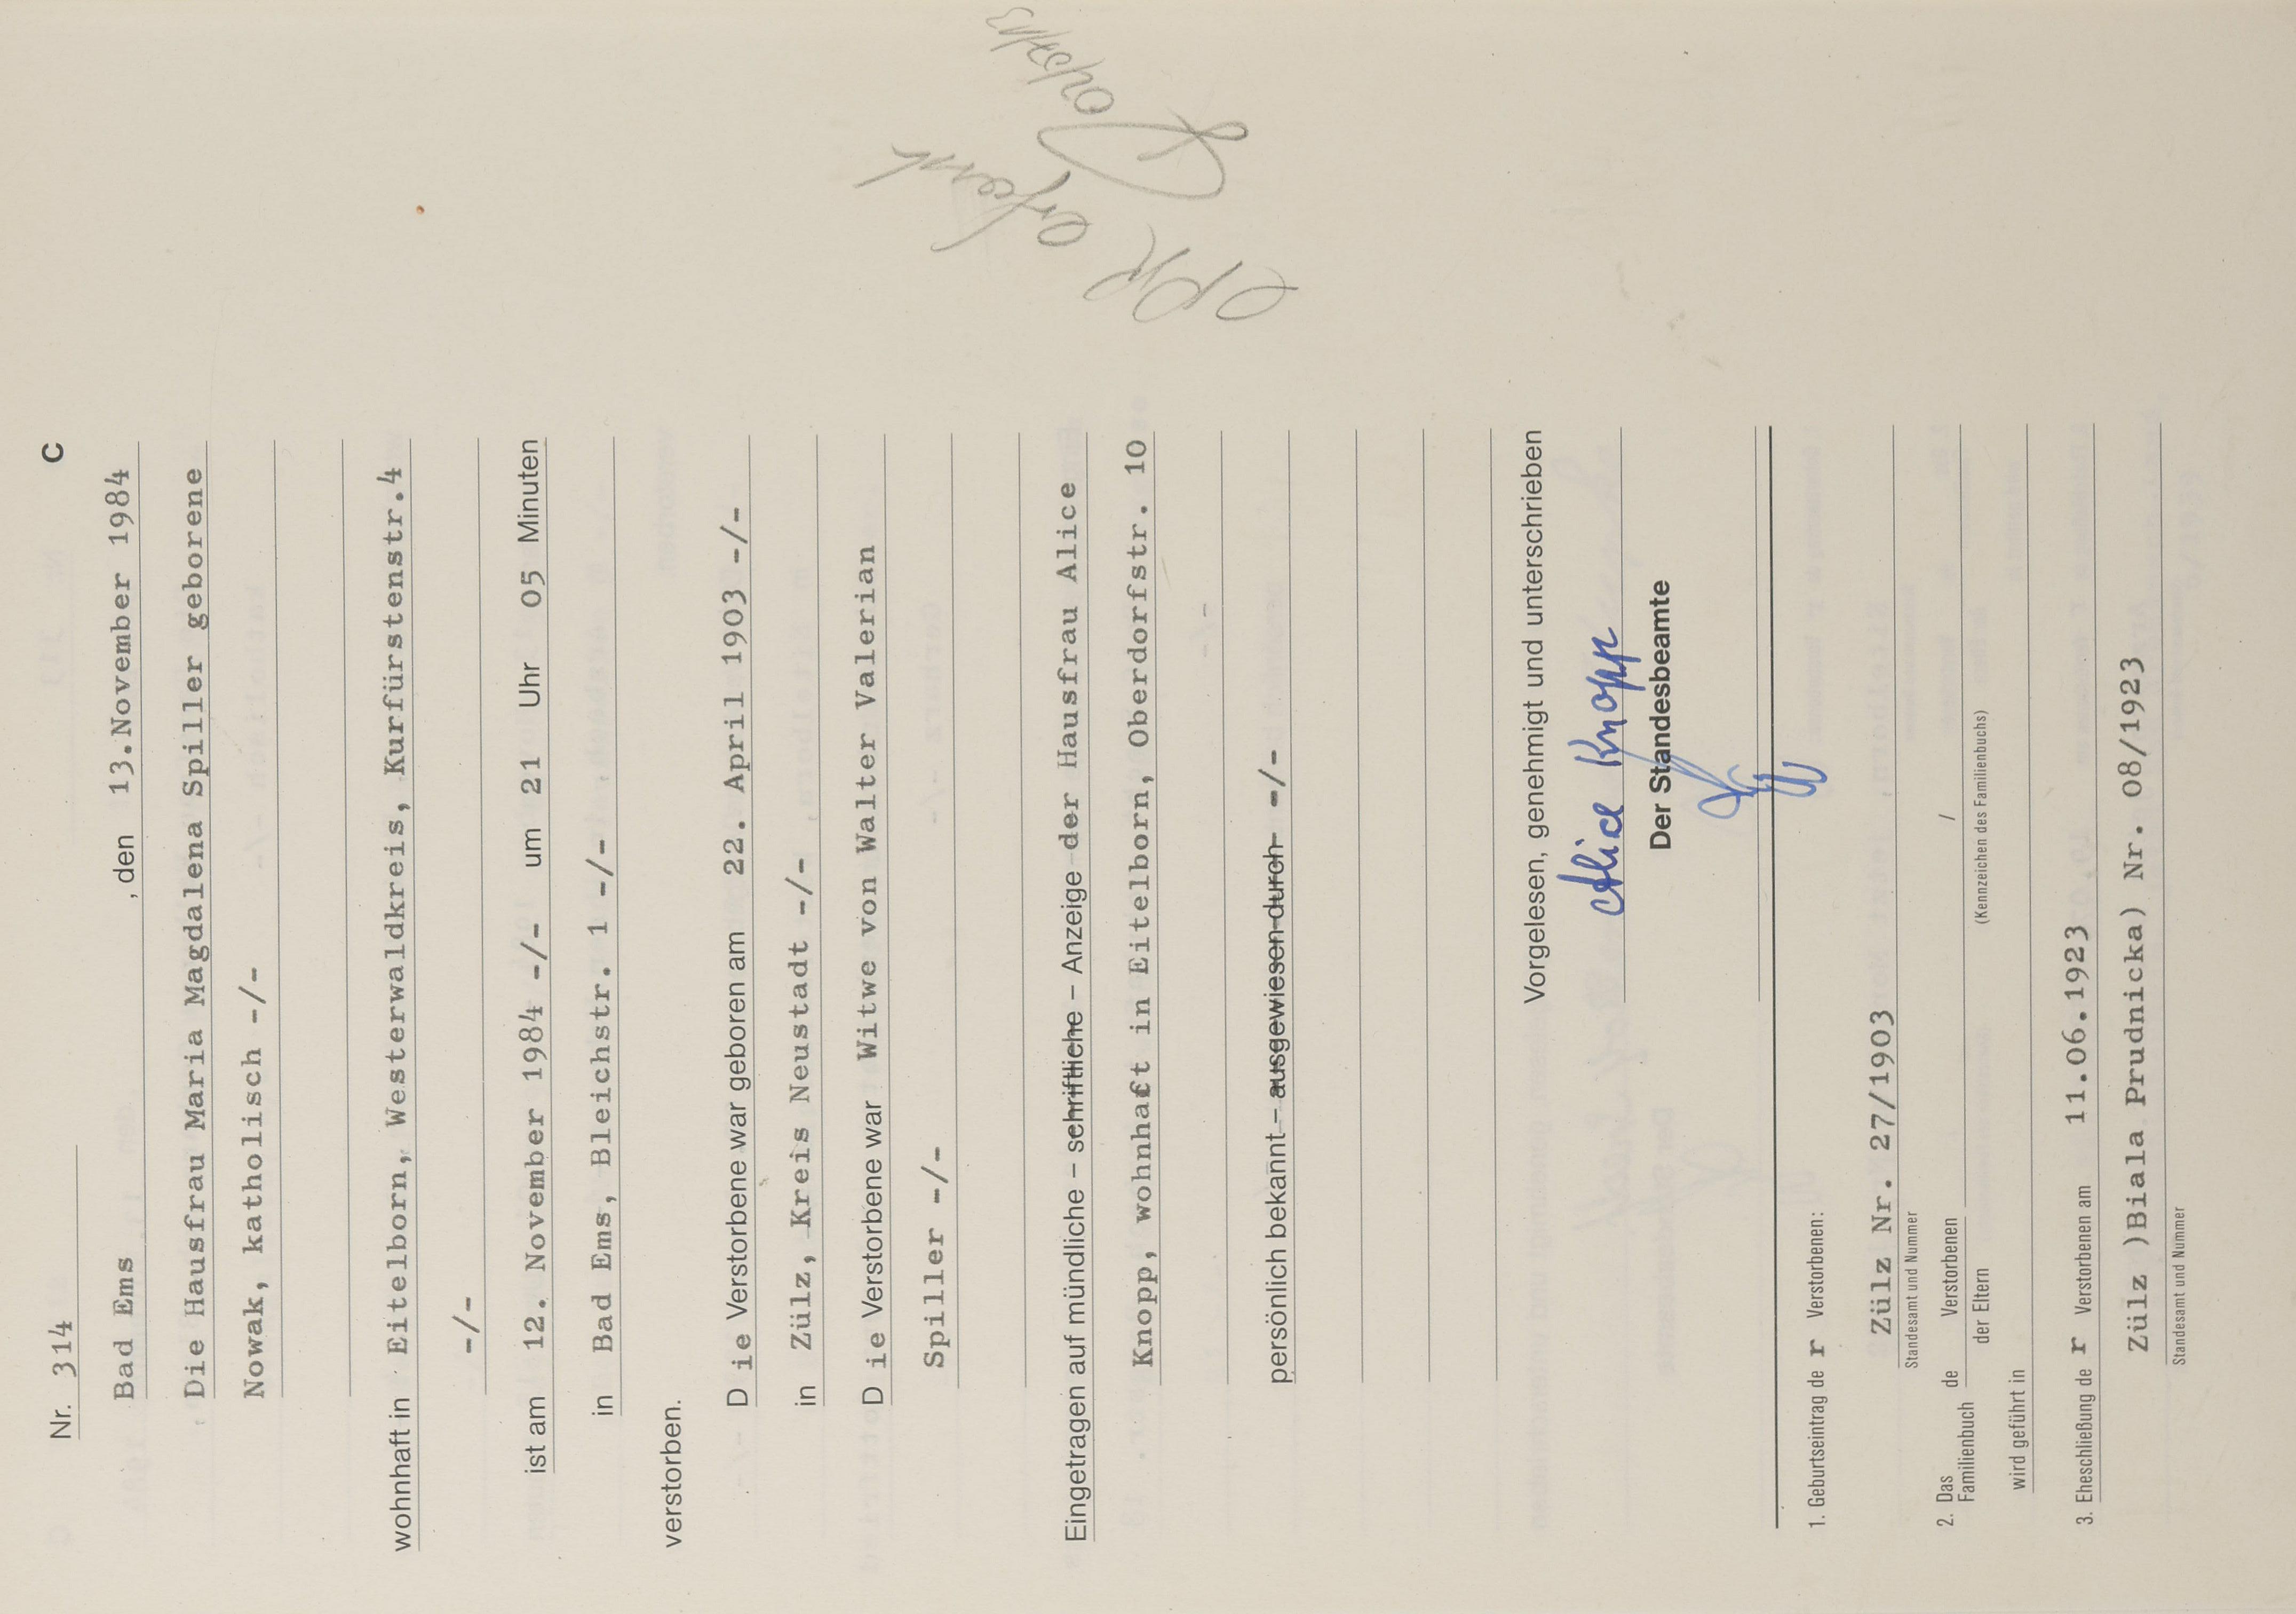 Nr. 314 C
Bad Ems , den 13.November 1984
Die Hausfrau Maria Magdalena Spiller geborene
Nowak, katholisch -/-
wohnhaft in Eitelborn, Westerwaldkreis, Kurfürstenstr.4
-/-
ist am 12. November 1984 -/- um 21 Uhr 05 Minuten
in Bad Ems, Bleichstr. 1 -/-
verstorben.
D ie Verstorbene war geboren am 22. April 1903 -/-
in Zülz, Kreis Neustadt -/-
D ie Verstorbene war Witwe von Walter Valerian
Spiller -/-
Eingetragen auf mündliche – schriftliche – Anzeige der Hausfrau Alice
Knopp, wohnhaft in Eitelborn, Oberdorfstr. 10
persönlich bekannt – ausgewiesen durch -/-
Vorgelesen, genehmigt und unterschrieben
Alice Knopp
Der Standesbeamte
1. Geburtseintrag de r Verstorbenen:
Zülz Nr. 27/1903
Standesamt und Nummer
2. Das Familienbuch de Verstorbenen /
der Eltern (Kennzeichen des Familienbuchs)
wird geführt in
3. Eheschließung de r Verstorbenen am 11.06.1923
Zülz )Biala Prudnicka) Nr. 08/1923
Standesamt und Nummer